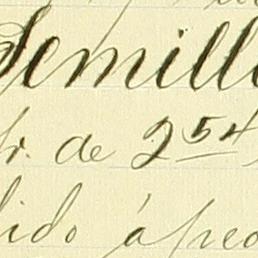 Semill
fr. de 254
lido á pre